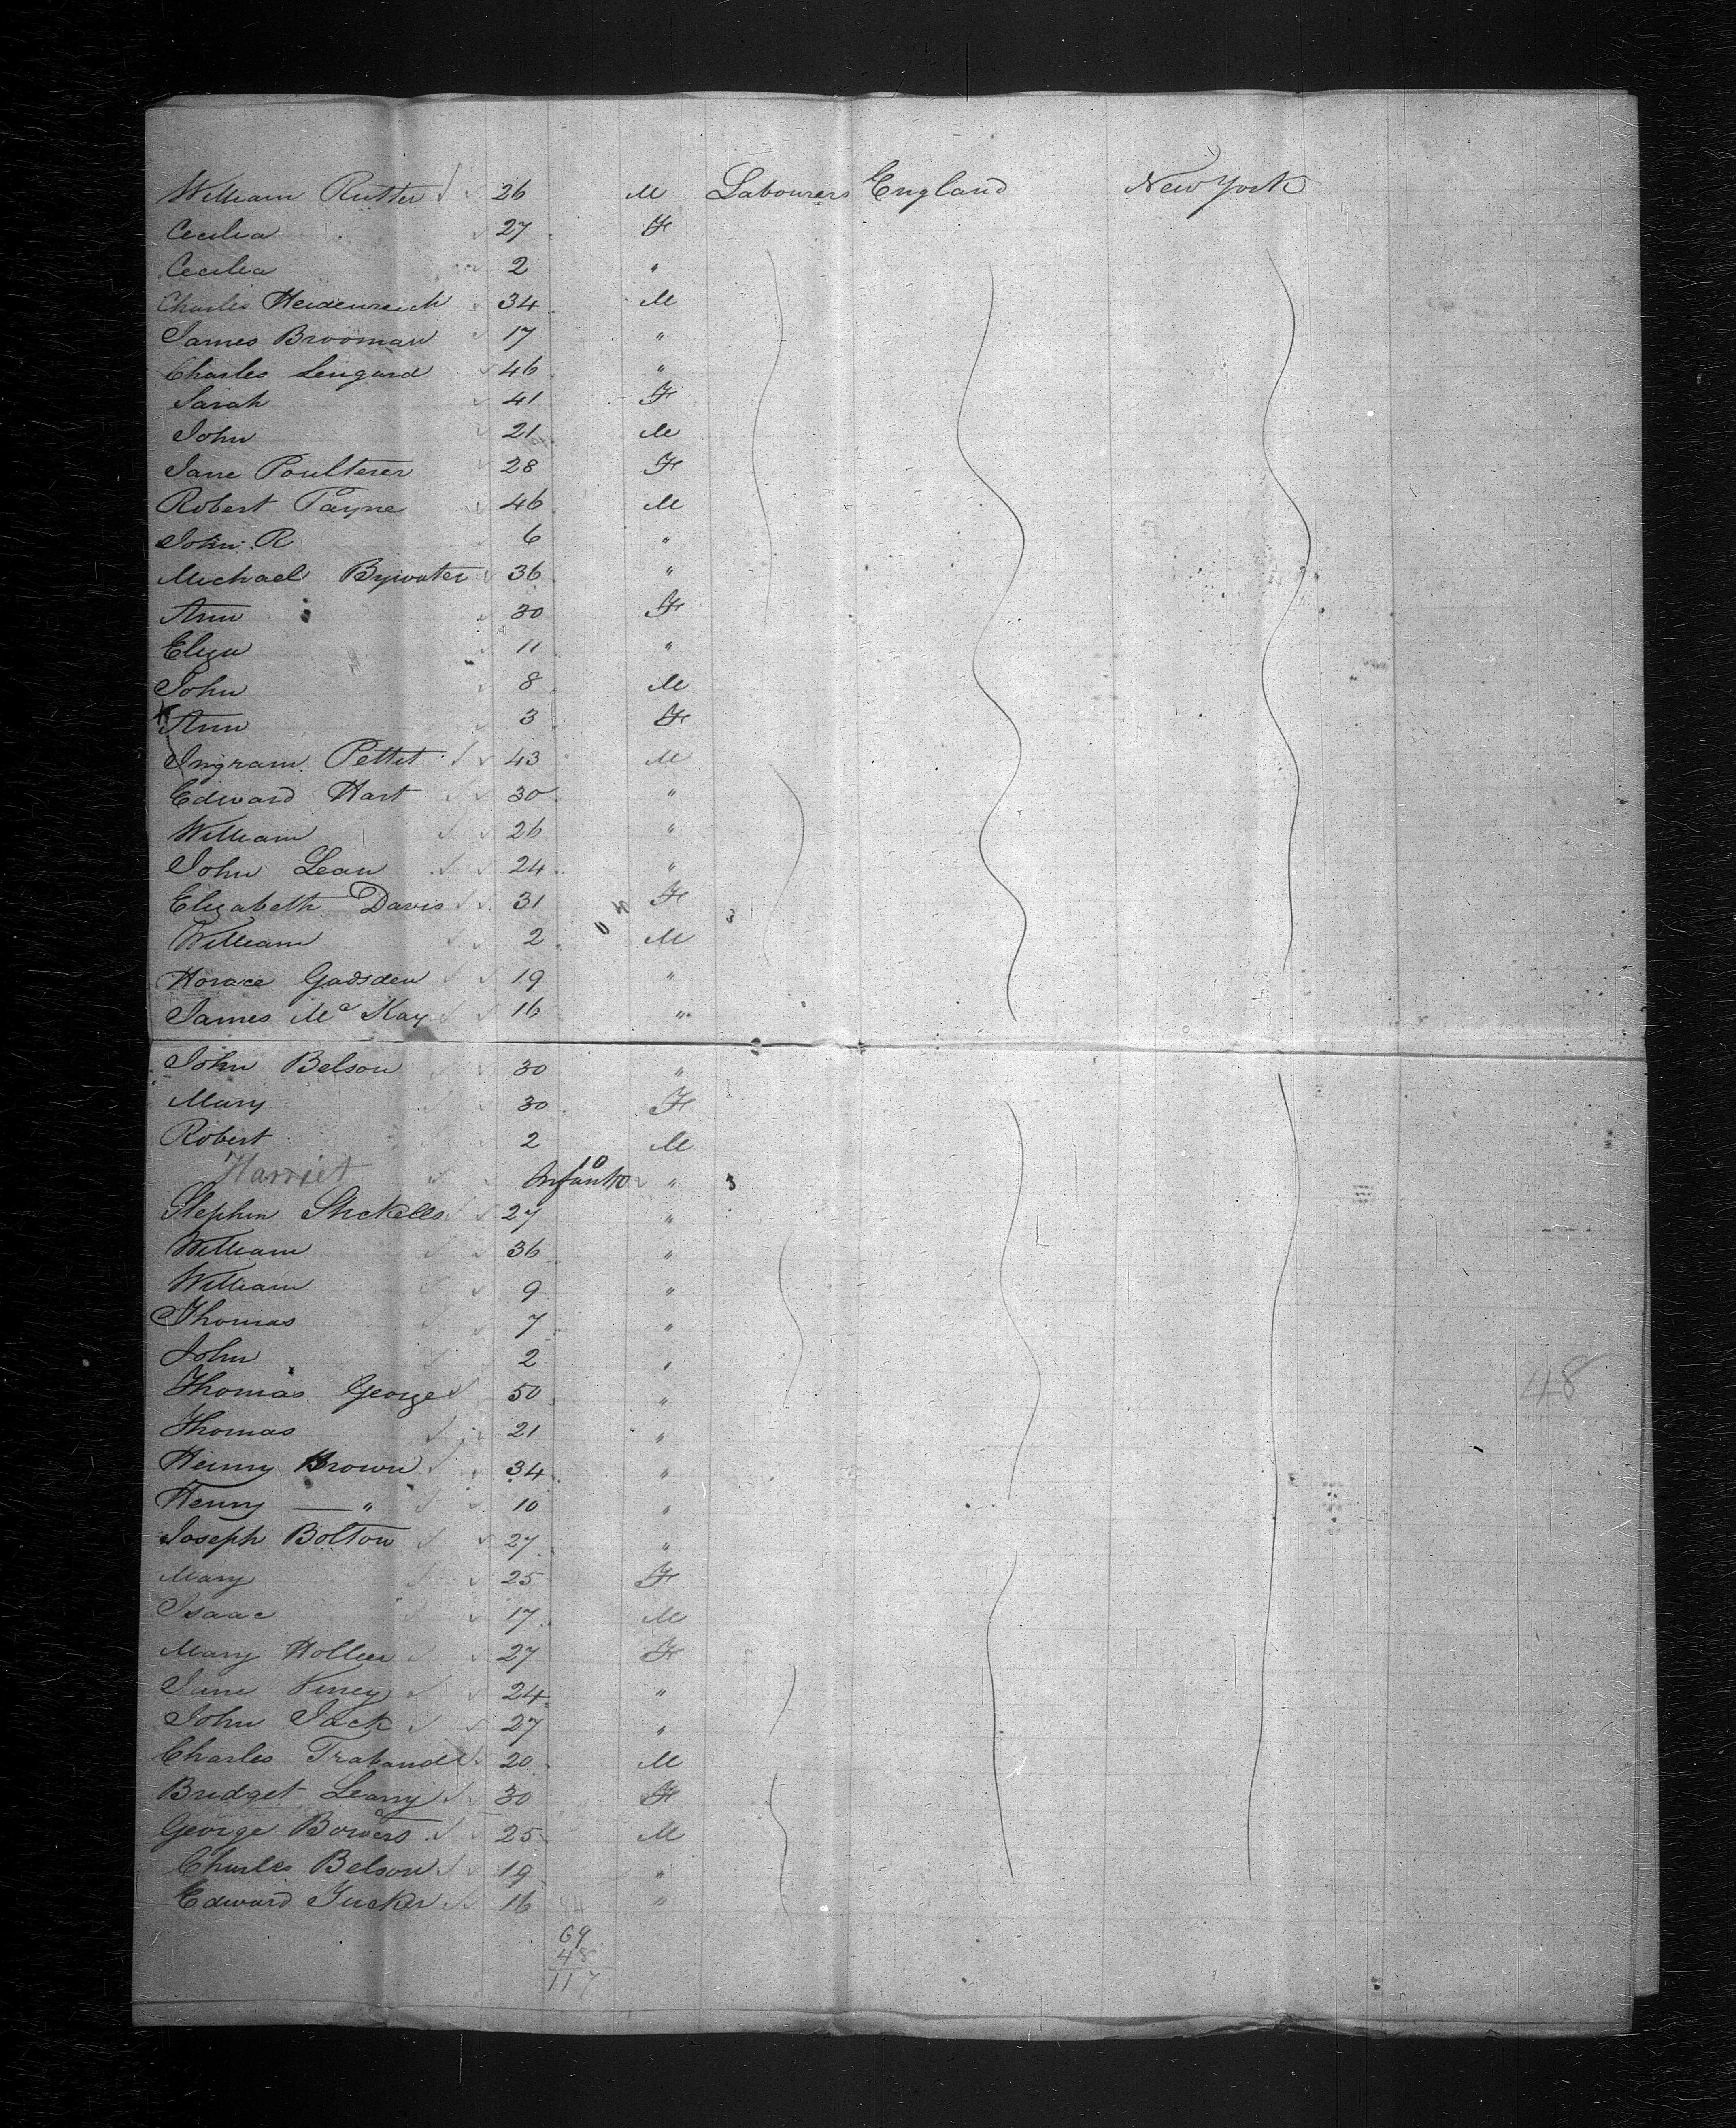 William Rutter 26 M Labourers England New York
Cecilia 27 F
Cecilia 2 "
Charles Heidenreich 34 M
James Brooman 17 "
Charles Lengard 46 "
Sarah 41 F
John 21 M
Jane Poulterer 28 F
Robert Payne 46 M
John R 6 "
Michael Bywater 36 "
Ann 30 F
Eliza 11 "
John 8 M
Ann 3 F
Ingram Pettit 43 M
Edward Hart 30 "
William 26 "
John Lean 24 "
Elizabeth Davis 31 F 3
William 2 M
Horace Gadsden 19 "
James Mc Kay 16 "
John Belson 30 "
Mary 30 F
Robert 2 M
Harriet Infant 10 " 3
Stephen Stickells 27 "
William 36 "
William 9 "
Thomas 7 "
John 2 "
Thomas George 50 " 48
Thomas 21 "
Henry Brown 34 "
Henry — " 10 "
Joseph Bolton 27 "
Mary 25 F
Isaac 17 M
Mary Hollier 27 F
Jane Viney 24 "
John Jack 27 "
Charles 20 M
Bridget Leary 30 F
George Bowers 25 M
Charles Belson 19 "
Edward Tucker 16 "
84
69
48
117